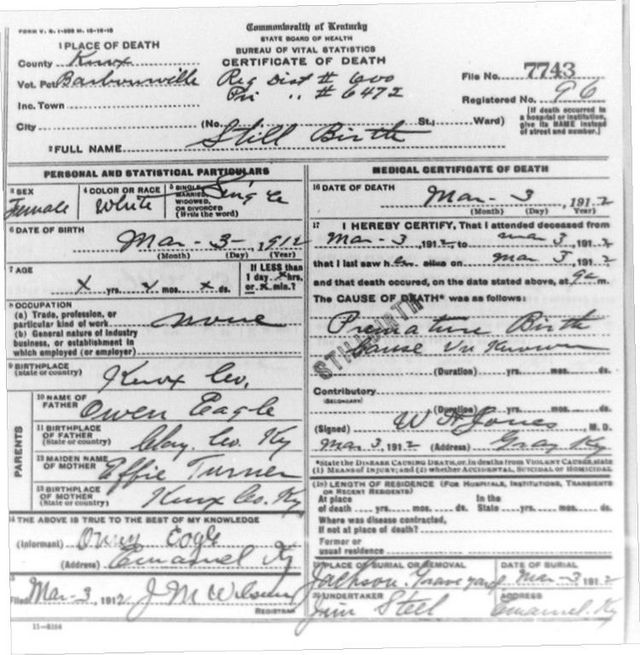 FORM V. S. 1-
Commonwealth of Kentucky
STATE BOARD OF HEALTH
BUREAU OF VITAL STATISTICS
CERTIFICATE OF DEATH
1 PLACE OF DEATH
County Knox
Vot. Pct Barbourville Reg Dist # 600
Pri " # 6472
File No. 7743
Registered No. 96
Inc. Town
City (No. St.; Ward)
(If death occurred in a hospital or institution, give its NAME instead of street and number.)
2 FULL NAME Still Birth
PERSONAL AND STATISTICAL PARTICULARS
3 SEX Female
4 COLOR OR RACE White
5 SINGLE, MARRIED, WIDOWED, OR DIVORCED (Write the word) Single
6 DATE OF BIRTH Mar - 3 - 1912
(Month) (Day) (Year)
7 AGE
x yrs. x mos. x ds.
If LESS than 1 day x hrs. or x min.?
8 OCCUPATION
(a) Trade, profession, or particular kind of work none
(b) General nature of industry business, or establishment in which employed (or employer)
9 BIRTHPLACE (State or country) Knox Co.
PARENTS
10 NAME OF FATHER Owen Eagle
11 BIRTHPLACE OF FATHER (State or country) Clay Co. Ky
12 MAIDEN NAME OF MOTHER Effie Turner
13 BIRTHPLACE OF MOTHER (State or country) Knox Co. Ky
14 THE ABOVE IS TRUE TO THE BEST OF MY KNOWLEDGE
(Informant) Owen Eagle
(Address) Emanuel Ky
15
Filed Mar - 3, 1912 J M Wilson
REGISTRAR
11-8
MEDICAL CERTIFICATE OF DEATH
16 DATE OF DEATH Mar - 3 1912
(Month) (Day) (Year)
17 I HEREBY CERTIFY, That I attended deceased from
Mar - 3, 1912, to Mar 3, 1912
that I last saw h alive on Mar 3, 1912
and that death occurred, on the date stated above, at 9 a m.
The CAUSE OF DEATH* was as follows:
STILLBIRTH
Premature Birth
Cause Unknown
(Duration) yrs. mos. ds.
Contributory
(SECONDARY)
(Duration) yrs. mos. ds.
(Signed) W H Jones, M. D.
Mar 3, 1912 (Address) Gray Ky
*State the DISEASE CAUSING DEATH, or, in deaths from VIOLENT CAUSES, state (1) MEANS OF INJURY; and (2) whether ACCIDENTAL, SUICIDAL or HOMICIDAL.
18 LENGTH OF RESIDENCE (FOR HOSPITALS, INSTITUTIONS, TRANSIENTS OR RECENT RESIDENTS)
At place of death yrs. mos. ds. In the State yrs. mos. ds.
Where was disease contracted, If not at place of death?
Former or usual residence
19 PLACE OF BURIAL OR REMOVAL Jackson Graveyard
DATE OF BURIAL Mar - 3 1912
20 UNDERTAKER Jim Steel
ADDRESS Emanuel Ky